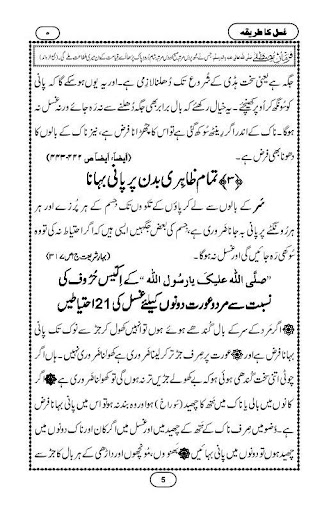 غسل کا طریقہ
۵
جگہ ہے یعنی سخت ہڈی کے شروع تک دُھلنا لازمی ہے۔ اور یہ یوں ہو سکے گا کہ پانی
کو سُونگھ کر اُوپر کھینچئے۔ یہ خیال رکھئے کہ بال برابر بھی جگہ دُھلنے سے نہ رَہ جائے ورنہ غسل نہ
ہو گا۔ ناک کے اندر اگر رِینٹھ سُوکھ گئی ہے تو اس کا چھڑانا فرض ہے، نیز ناک کے بالوں کا
دھونا بھی فرض ہے۔ (اَیضاً، اَیضاً ص ۴۴۲۔۴۴۳)
﴿۳﴾ تمام ظاہری بدن پر پانی بہانا
سَر کے بالوں سے لے کر پاؤں کے تلووں تک جسم کے ہر پُرزے اور
ہر رُونگٹے پر پانی بہ جانا ضروری ہے، جسم کی بعض جگہیں ایسی ہیں کہ اگر احتیاط نہ کی تو وہ
سُوکھی رَہ جائیں گی اور غسل نہ ہو گا۔ (بہارِ شریعت ج۱ ص ۳۱۷)
”صلَّی اللہُ علیکَ یا رسُولَ اللہ“ کے اِکیس حُرُوف کی
نسبت سے مرد و عورت دونوں کیلئے غسل کی 21 احتیاطیں
اگر مَرد کے سر کے بال گُندھے ہوئے ہوں تو انہیں کھول کر جڑ سے نوک تک پانی
بہانا فرض ہے اور عورت پر صِرف جڑ تر کر لینا ضروری ہے کھولنا ضروری نہیں۔ ہاں اگر
چوٹی اتنی سخت گُندھی ہوئی ہو کہ بے کھولے جڑیں تر نہ ہوں گی تو کھولنا ضروری ہے اگر
کانوں میں بالی یا ناک میں نتھ کا چھید (سوراخ) ہو اور وہ بند نہ ہو تو اس میں پانی بہانا فرض
ہے۔ وُضو میں صِرف ناک کے نتھ کے چھید میں اور غسل میں اگر کان اور ناک دونوں میں
چھید ہوں تو دونوں میں پانی بہائیں بھنوؤں، مونچھوں اور داڑھی کے ہر بال کا جڑ سے
5